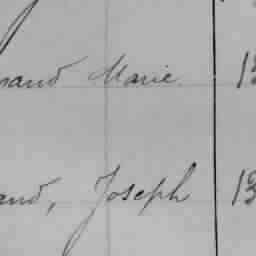 and Marie 13
and, Joseph 13